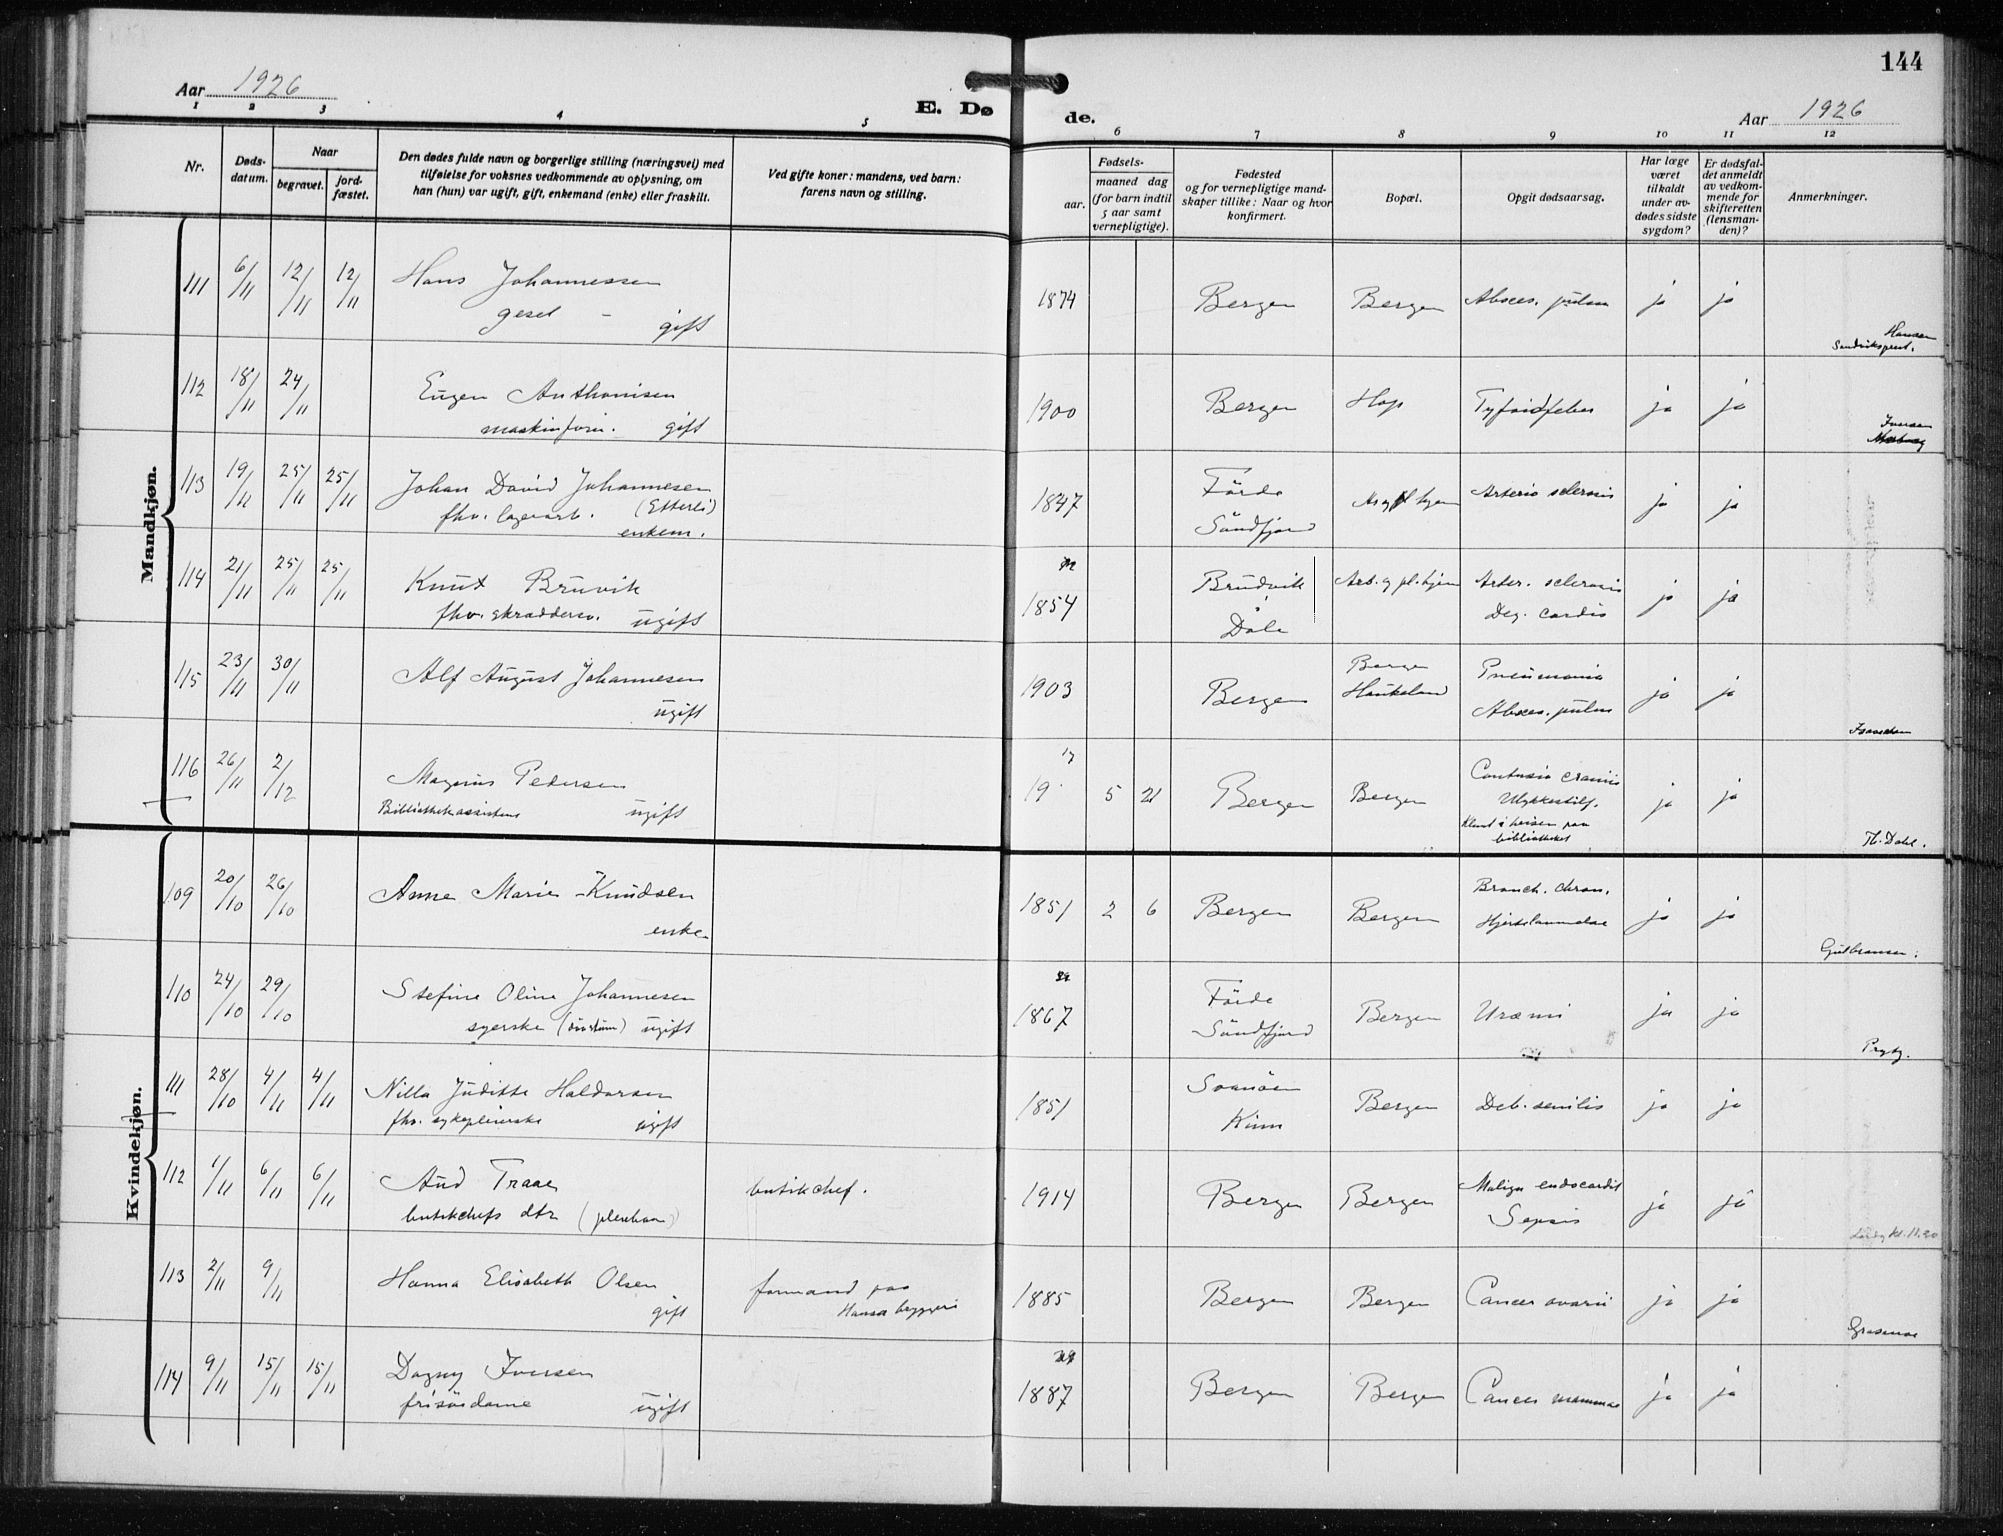 144
Aar 1926
E. Dø
de.
Aar 1926
1 2 3 4 5 6 7 8 9 10 11 12
Nr.
Døds-
datum.
Naar
begravet.
jord-
fæstet.
Den dødes fulde navn og borgerlige stilling (næringsvei) med
tilføielse for voksnes vedkommende av oplysning, om
han (hun) var ugift, gift, enkemand (enke) eller fraskilt.
Ved gifte koner: mandens, ved barn:
farens navn og stilling.
Fødsels-
aar.
maaned dag
(for barn indtil
5 aar samt
vernepligtige).
Fødested
og for vernepligtige mand-
skaper tillike: Naar og hvor
konfirmert.
Bopæl.
Opgit dødsaarsag.
Har læge
været
tilkaldt
under av-
dødes sidste
sygdom?
Er dødsfal-
det anmeldt
av vedkom-
mende for
skifteretten
(lensman-
den)?
Anmerkninger.
Mandkjøn.
111 6/11 12/11 12/11 Hans Johannessen 1874 Bergen Bergen Absces. pulm ja ja
gesel - gift
Hansen
112 18/11 24/11 Eugen Anthonisen 1900 Bergen Hop Tyfoidfeber ja ja
maskinform. gift
Iversen
113 19/11 25/11 25/11 Johan David Johannesen 1847 Förde Arterio sclerosis ja ja
fhv. lagerarb. (Etterli) Söndfjord
enkem.
114 21/11 25/11 25/11 Knut Bruvik 1854 Brudvik Arb. og pl.hjem Arter. sclerosis ja ja
fhv. skræddersv. ugift Dale Deg. cordis
115 23/11 30/11 Alf August Johannesen 1903 Bergen Bergen Pneumonia ja ja
ugift Haukeland Absces. pulm
116 26/11 2/12 Magnus Pedersen 19 17 5 21 Bergen Bergen Contusio cranii ja ja
Bibliothekassistent ugift Ulykkestilf.
Klemt i heisen paa
bibliotheket
Th. Dahl.
Kvindekjøn.
109 20/10 26/10 Anne Marie Knudsen 1851 2 6 Bergen Bergen Bronch. chron. ja ja
enke Hjertelammelse
Gulbransen.
110 24/10 29/10 Stefine Oline Johannesen 1867 Förde Bergen Uræmi ja ja
syerske ugift Söndfjord
111 28/10 4/11 4/11 Nilla Juditte Haldorsen 1851 Svanöen Bergen Deb. senilis ja ja
fhv. sykepleierske ugift Kinn
112 1/11 6/11 6/11 Aud Traae butikchef. 1914 Bergen Bergen Malign endocardit ja ja
butikchefs dtr (plebarn) Sepsis
kl. 11.20
113 2/11 9/11 Hanna Elisabeth Olsen formand paa 1885 Bergen Bergen Cancer ovarii ja ja
gift Hansa bryggeri
114 9/11 15/11 15/11 Dagny Iversen 1887 Bergen Bergen Cancer mammae ja ja
frisördame ugift